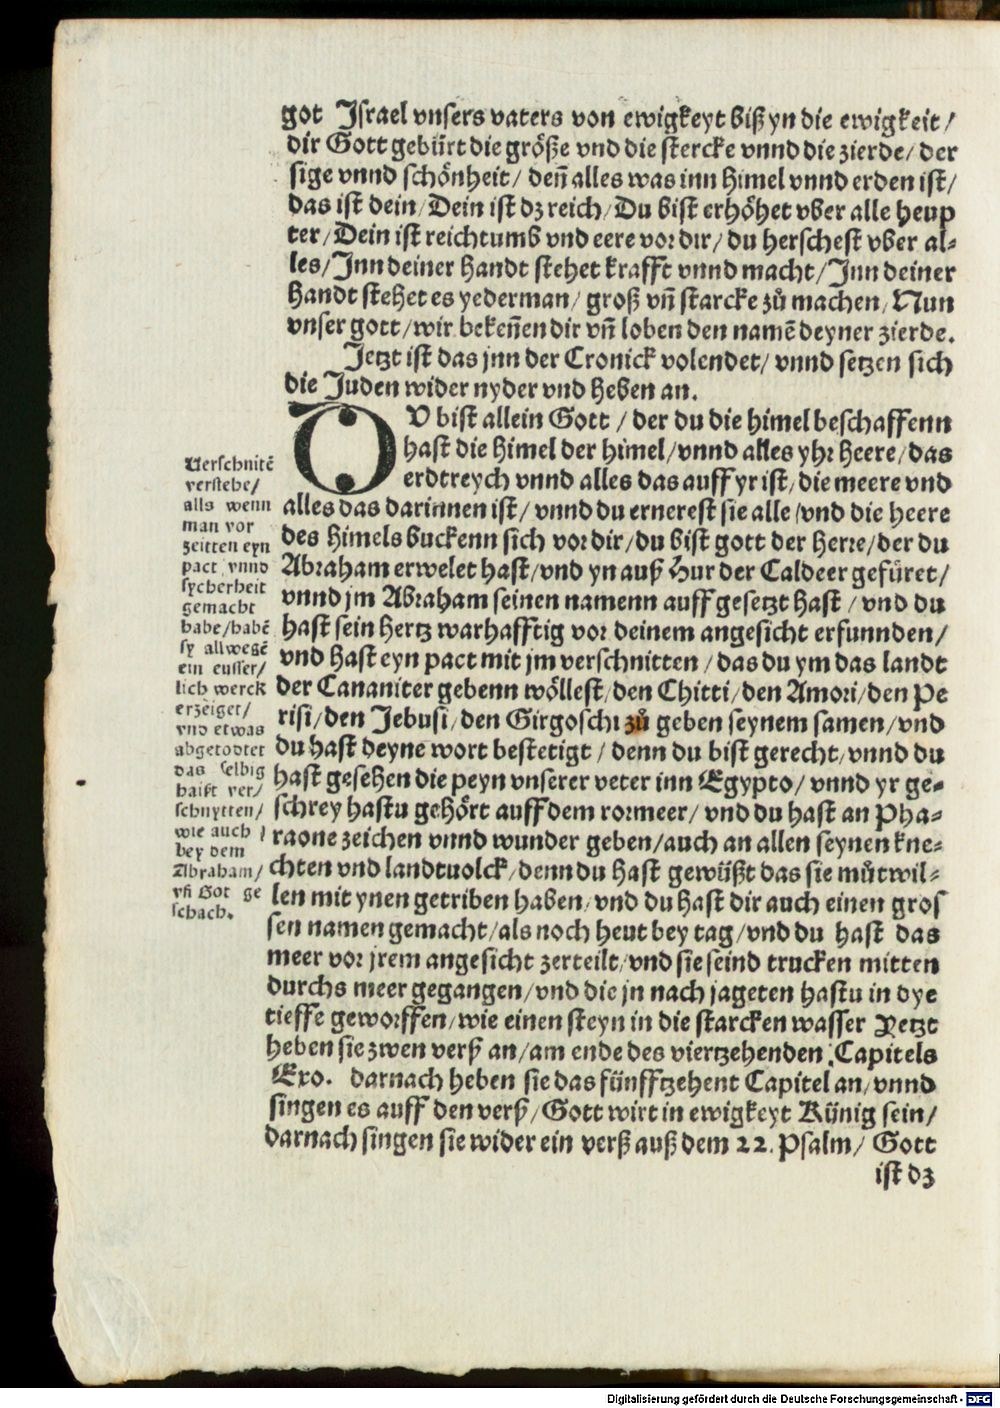 got Israel vnsers vaters von ewigkeyt biß yn die ewigkeit/
dir Gott gebürt die größe vnd die stercke vnnd die zierde/ der
sige vnnd schönheit/ deñ alles was inn himel vnnd erden ist/
das ist dein/ Dein ist dz reich/ Du bist erhöhet vber alle heup
ter/ Dein ist reichtumb vnd eere vor dir/ du herschest vber al-
les/ Inn deiner handt stehet krafft vnnd macht/ Inn deiner
handt stehet es yederman/ groß vñ starcke zů machen/ Nun
vnser gott/ wir bekeñen dir vñ loben den namē deyner zierde.
Jetzt ist das jnn der Cronick volendet/ vnnd setzen sich
die Juden wider nyder vnd heben an.
DV bist allein Gott / der du die himel beschaffenn
hast die himel der himel/ vnnd alles yhr heere/ das
erdtreych vnnd alles das auff yr ist/ die meere vnd
alles das darinnen ist/ vnnd du ernerest sie alle/ vnd die heere
des himels buckenn sich vor dir/ du bist gott der herre/ der du
Abraham erwelet hast/ vnd yn auß Hur der Caldeer gefüret/
vnnd jm Abraham seinen namenn auff gesetzt hast / vnd du
hast sein hertz warhafftig vor deinem angesicht erfunnden/
vnd hast eyn pact mit jm verschnitten / das du ym das landt
der Cananiter gebenn wöllest/ den Chitti/ den Amori/ den Pe
risi/ den Jebusi/ den Girgoschi zů geben seynem samen/ vnd
du hast deyne wort bestetigt / denn du bist gerecht/ vnnd du
hast gesehen die peyn vnserer veter inn Egypto/ vnnd yr ge-
schrey hastu gehört auff dem rormeer/ vnd du hast an Pha-
raone zeichen vnnd wunder geben/ auch an allen seynen kne-
chten vnd landtuolck/ denn du hast gewüßt das sie můtwil-
len mit ynen getriben haben/ vnd du hast dir auch einen gros
sen namen gemacht/ als noch heut bey tag/ vnd du hast das
meer vor jrem angesicht zerteilt/ vnd sie seind trucken mitten
durchs meer gegangen/ vnd die jn nach jageten hastu in dye
tieffe geworffen/ wie einen steyn in die starcken wasser Yetzt
heben sie zwen verß an/ am ende des viertzehenden Capitels
Exo. darnach heben sie das fünfftzehent Capitel an/ vnnd
singen es auff den verß/ Gott wirt in ewigkeyt Künig sein/
darnach singen sie wider ein verß auß dem 22. Psalm/ Gott
ist dz
Verschnitē
verstehe/
alls wenn
man vor
zeitten eyn
pact vnnd
sycherheit
gemacht
habe/ habē
sy allwegē
ein eusser/
lich werck
erzeiget/
vnd etwas
abgetödtet
das selbig
haist ver/
schnytten/
wie auch
bey dem
Abraham/
vñ Got ge
schach.
Digitalisierung gefördert durch die Deutsche Forschungsgemeinschaft - DFG